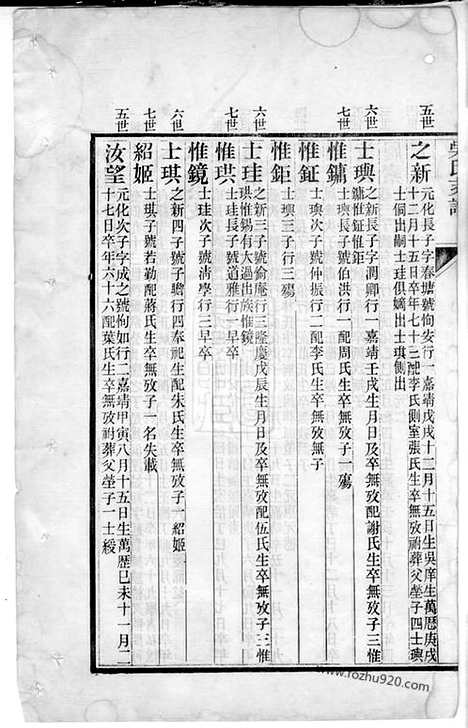 吳氏支譜
五世
之新
元化長子字春塘號恂安行一嘉靖戊戌十二月十五日生吳庠生萬曆庚戌
十二月十五日卒年七十三配李氏側室張氏生卒無攷祔葬父塋子四士璵
士侗出嗣士珪俱嫡出士琪側出
六世
士璵
之新長子字潤卿行一嘉靖壬戌生月日及卒無攷配謝氏生卒無攷子三惟
鏞惟鉦惟鉅
七世
惟鏞
士璵長子號伯洪行一配周氏生卒無攷子一殤
惟鉦
士璵次子號仲振行二配李氏生卒無攷無子
惟鉅
士璵三子行三殤
六世
士珪
之新三子號偷庵行三隆慶戊辰生月日及卒無攷配伍氏生卒無攷子三惟
珙惟錫有大過出族惟鏡
七世
惟珙
士珪長子號道雅行一早卒
惟鏡
士珪次子號清學行三早卒
六世
士琪
之新四子號子瞻行四奉祀生配朱氏生卒無攷子一紹姬
七世
紹姬
士琪子號若勒配蔣氏生卒無攷子一名失載
五世
汝望
元化次子字成之號恂如行二嘉靖甲寅八月十五日生萬歷己未十一月二
十七日卒年六十六配葉氏生卒無攷祔葬父塋子一士綬
www.fozhu920.com